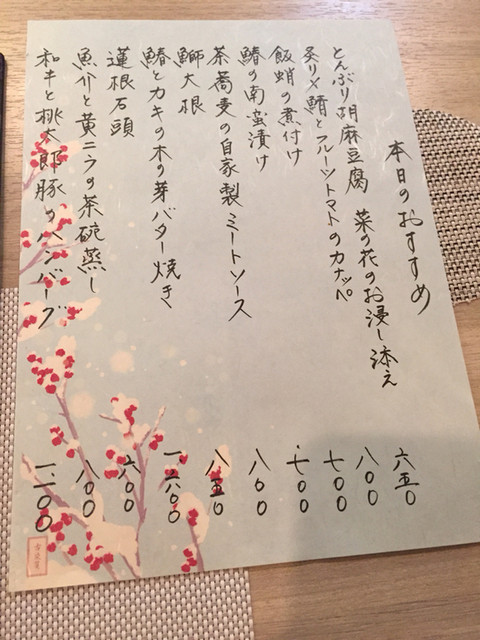 本日のおすすめ
とんぶり胡麻豆腐 菜の花のお浸し添え 六五〇
炙り〆鯖とフルーツトマトのカナッペ 八〇〇
飯蛸の煮付け 七〇〇
鰆の南蛮漬け 七〇〇
茶蕎麦の自家製ミートソース 八〇〇
鰤大根 八五〇
鰆とカキの木の芽バター焼き 一、二〇〇
蓮根石頭 六〇〇
魚介と黄ニラの茶碗蒸し 八〇〇
和牛と桃太郎豚のハンバーグ 一、一〇〇